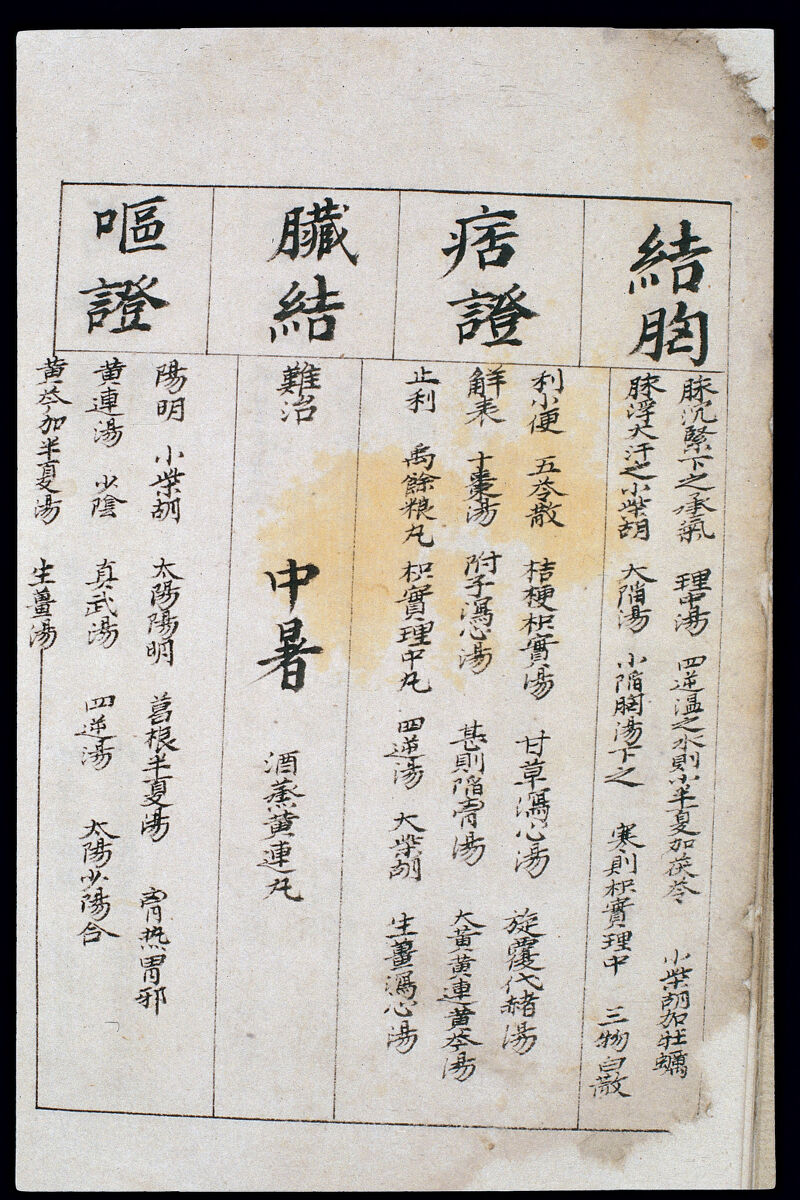 結胸
脉沉緊下之承氣 理中湯 四逆溫之水則小半夏加茯苓 小柴胡加牡蠣
脉浮大汗之小柴胡 大陷湯 小陷胸湯下之 寒則枳實理中 三物白散
痞證
利小便 五苓散 桔梗枳實湯 甘草瀉心湯 旋覆代赭湯
解表 十棗湯 附子瀉心湯 甚則陷胷湯 大黃黃連黃芩湯
止利 禹餘粮丸 枳實理中丸 四逆湯 大柴胡 生薑瀉心湯
臟結
難治 中暑 酒蒸黃連丸
嘔證
陽明 小柴胡 太陽陽明 葛根半夏湯 胷热胃邪
黃連湯 少陰 真武湯 四逆湯 太陽少陽合
黃芩加半夏湯 生薑湯